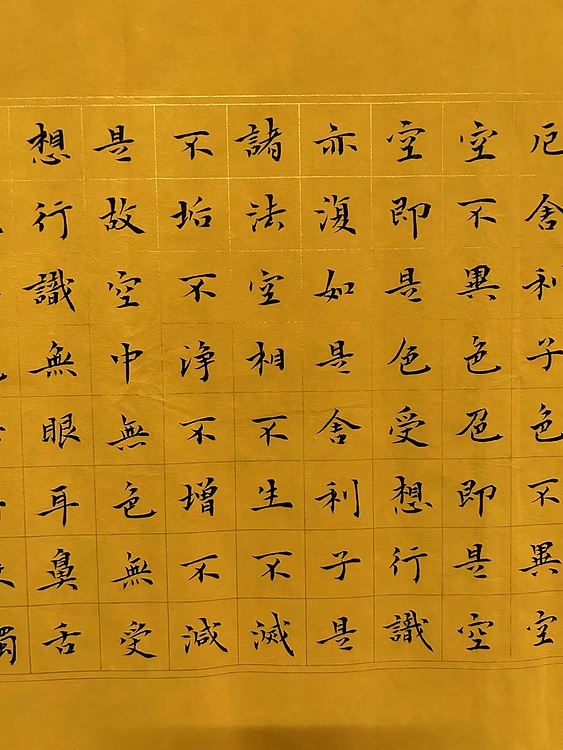 厄舍利子色不異空
空不異色色即是空
空即是色受想行識
亦復如是舍利子是
諸法空相不生不滅
不垢不淨不增不減
是故空中無色無受
想行識無眼耳鼻舌
觸